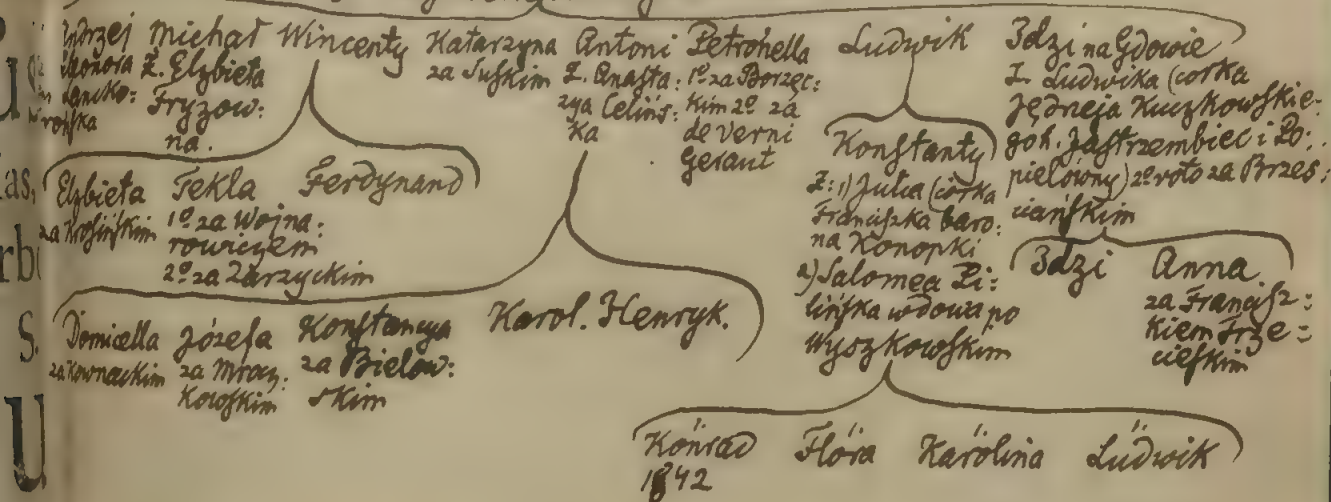 Michał
Ż. Elżbieta
Fryzow:
na.
Wincenty
Katarzyna
za Suskim
Antoni
Ż. Anasta:
zya Celińs:
ka
Petronella
1º za Borzęc:
kim 2º za
de Verni
Geraut
Ludwik
Idzi na Gdowie
Ż. Ludwika (córka
Jędrzeja Kuczkowskie-
go h. Jastrzembiec i Po:
pielówny) 2º voto za Brzes:
ciańskim
Elżbieta
za Krosińskim
Tekla
1º za Wojna:
rowiczem
2º za Zarzyckim
Ferdynand
Konstanty
Ż: 1) Julia (córka
Franciszka baro:
na Konopki
2) Salomea Pi:
lińska wdowa po
Wyszkowskim
Idzi
Anna
za Francisz:
kiem Trze:
cieskim
Domicella
za Kownackim
Józefa
za Mrocz:
kowskim
Konstancya
za Bielow:
skim
Karol. Henryk.
Konrad
1842
Flóra
Karólina
Ludwik